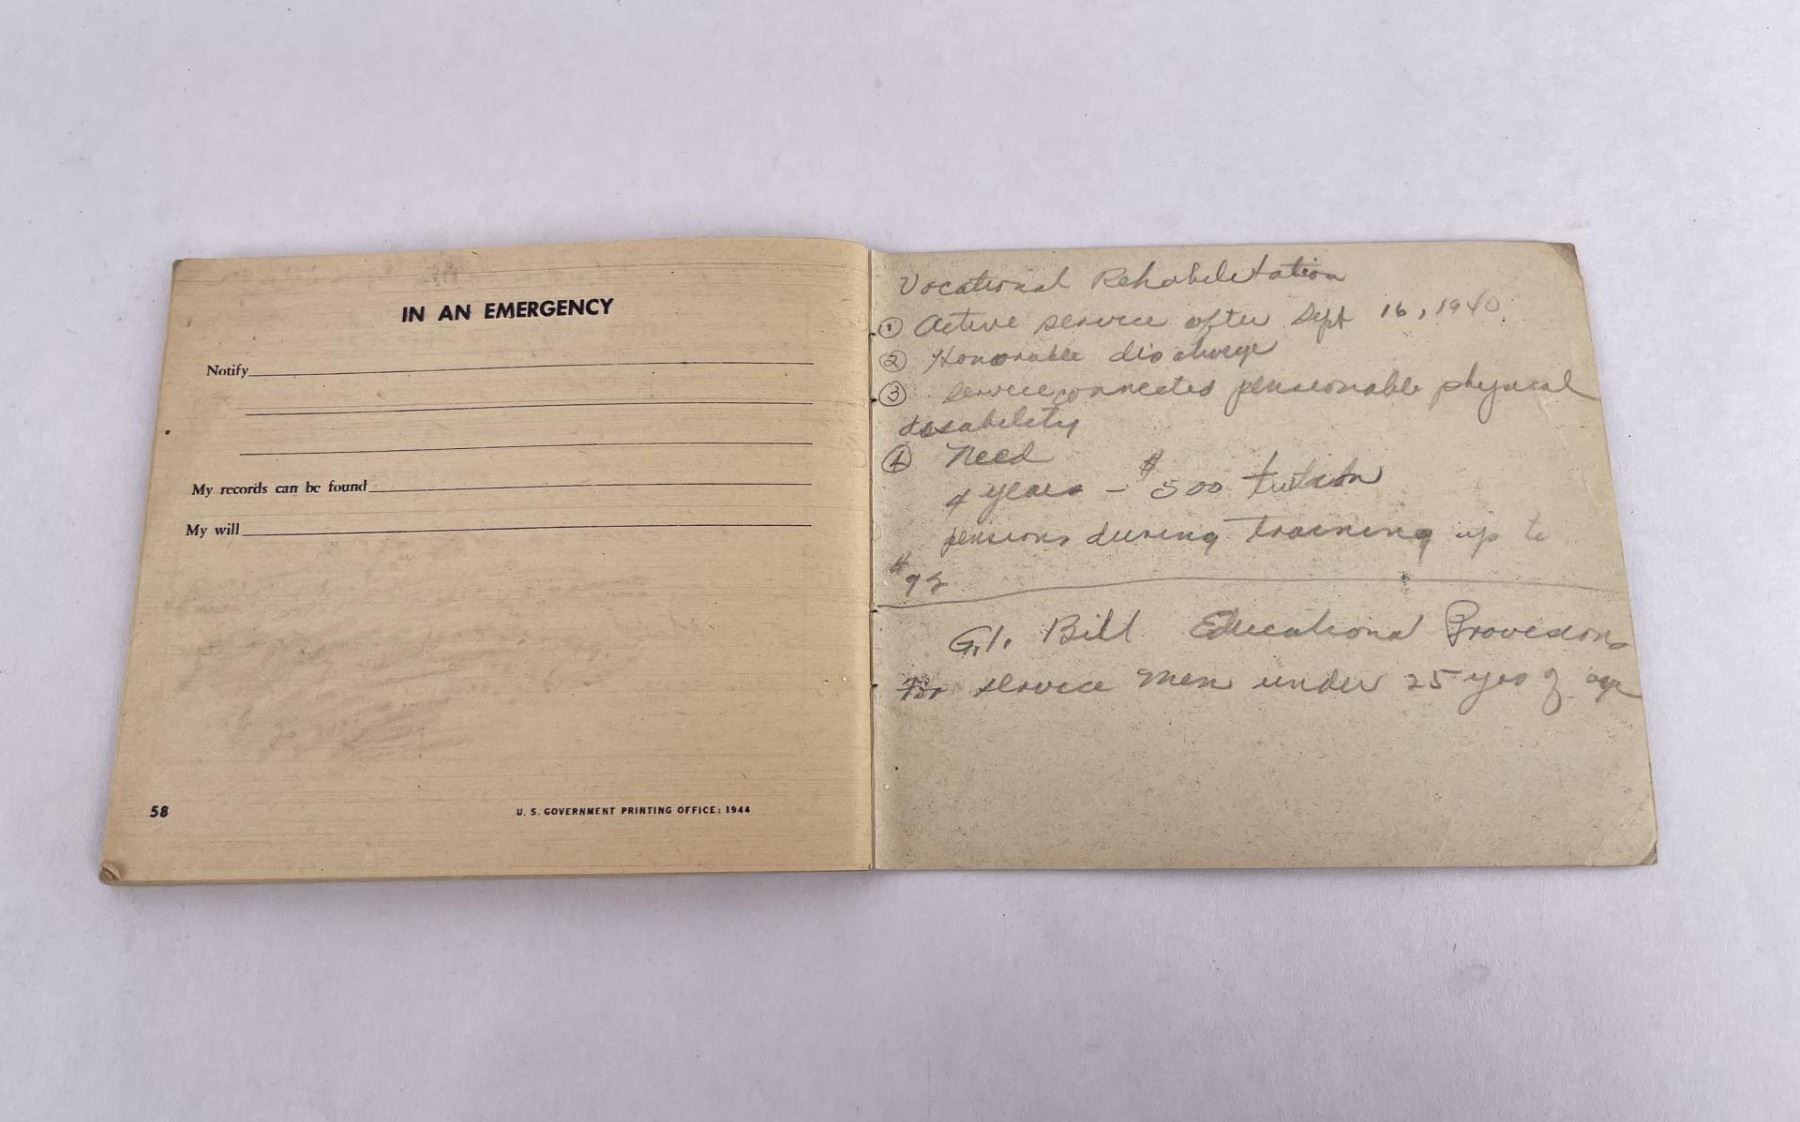 IN AN EMERGENCY
Notify
My records can be found
My will
58
U. S. GOVERNMENT PRINTING OFFICE: 1944
Vocational Rehabilitation
① Active service after Sept 16, 1940.
② Honorable discharge
③ Service connected pensionable physical
disability
④ Need
4 years - $500 tuition
pensions during training up to
$92
G.I. Bill Educational Provisions
For service men under 25 yrs of age